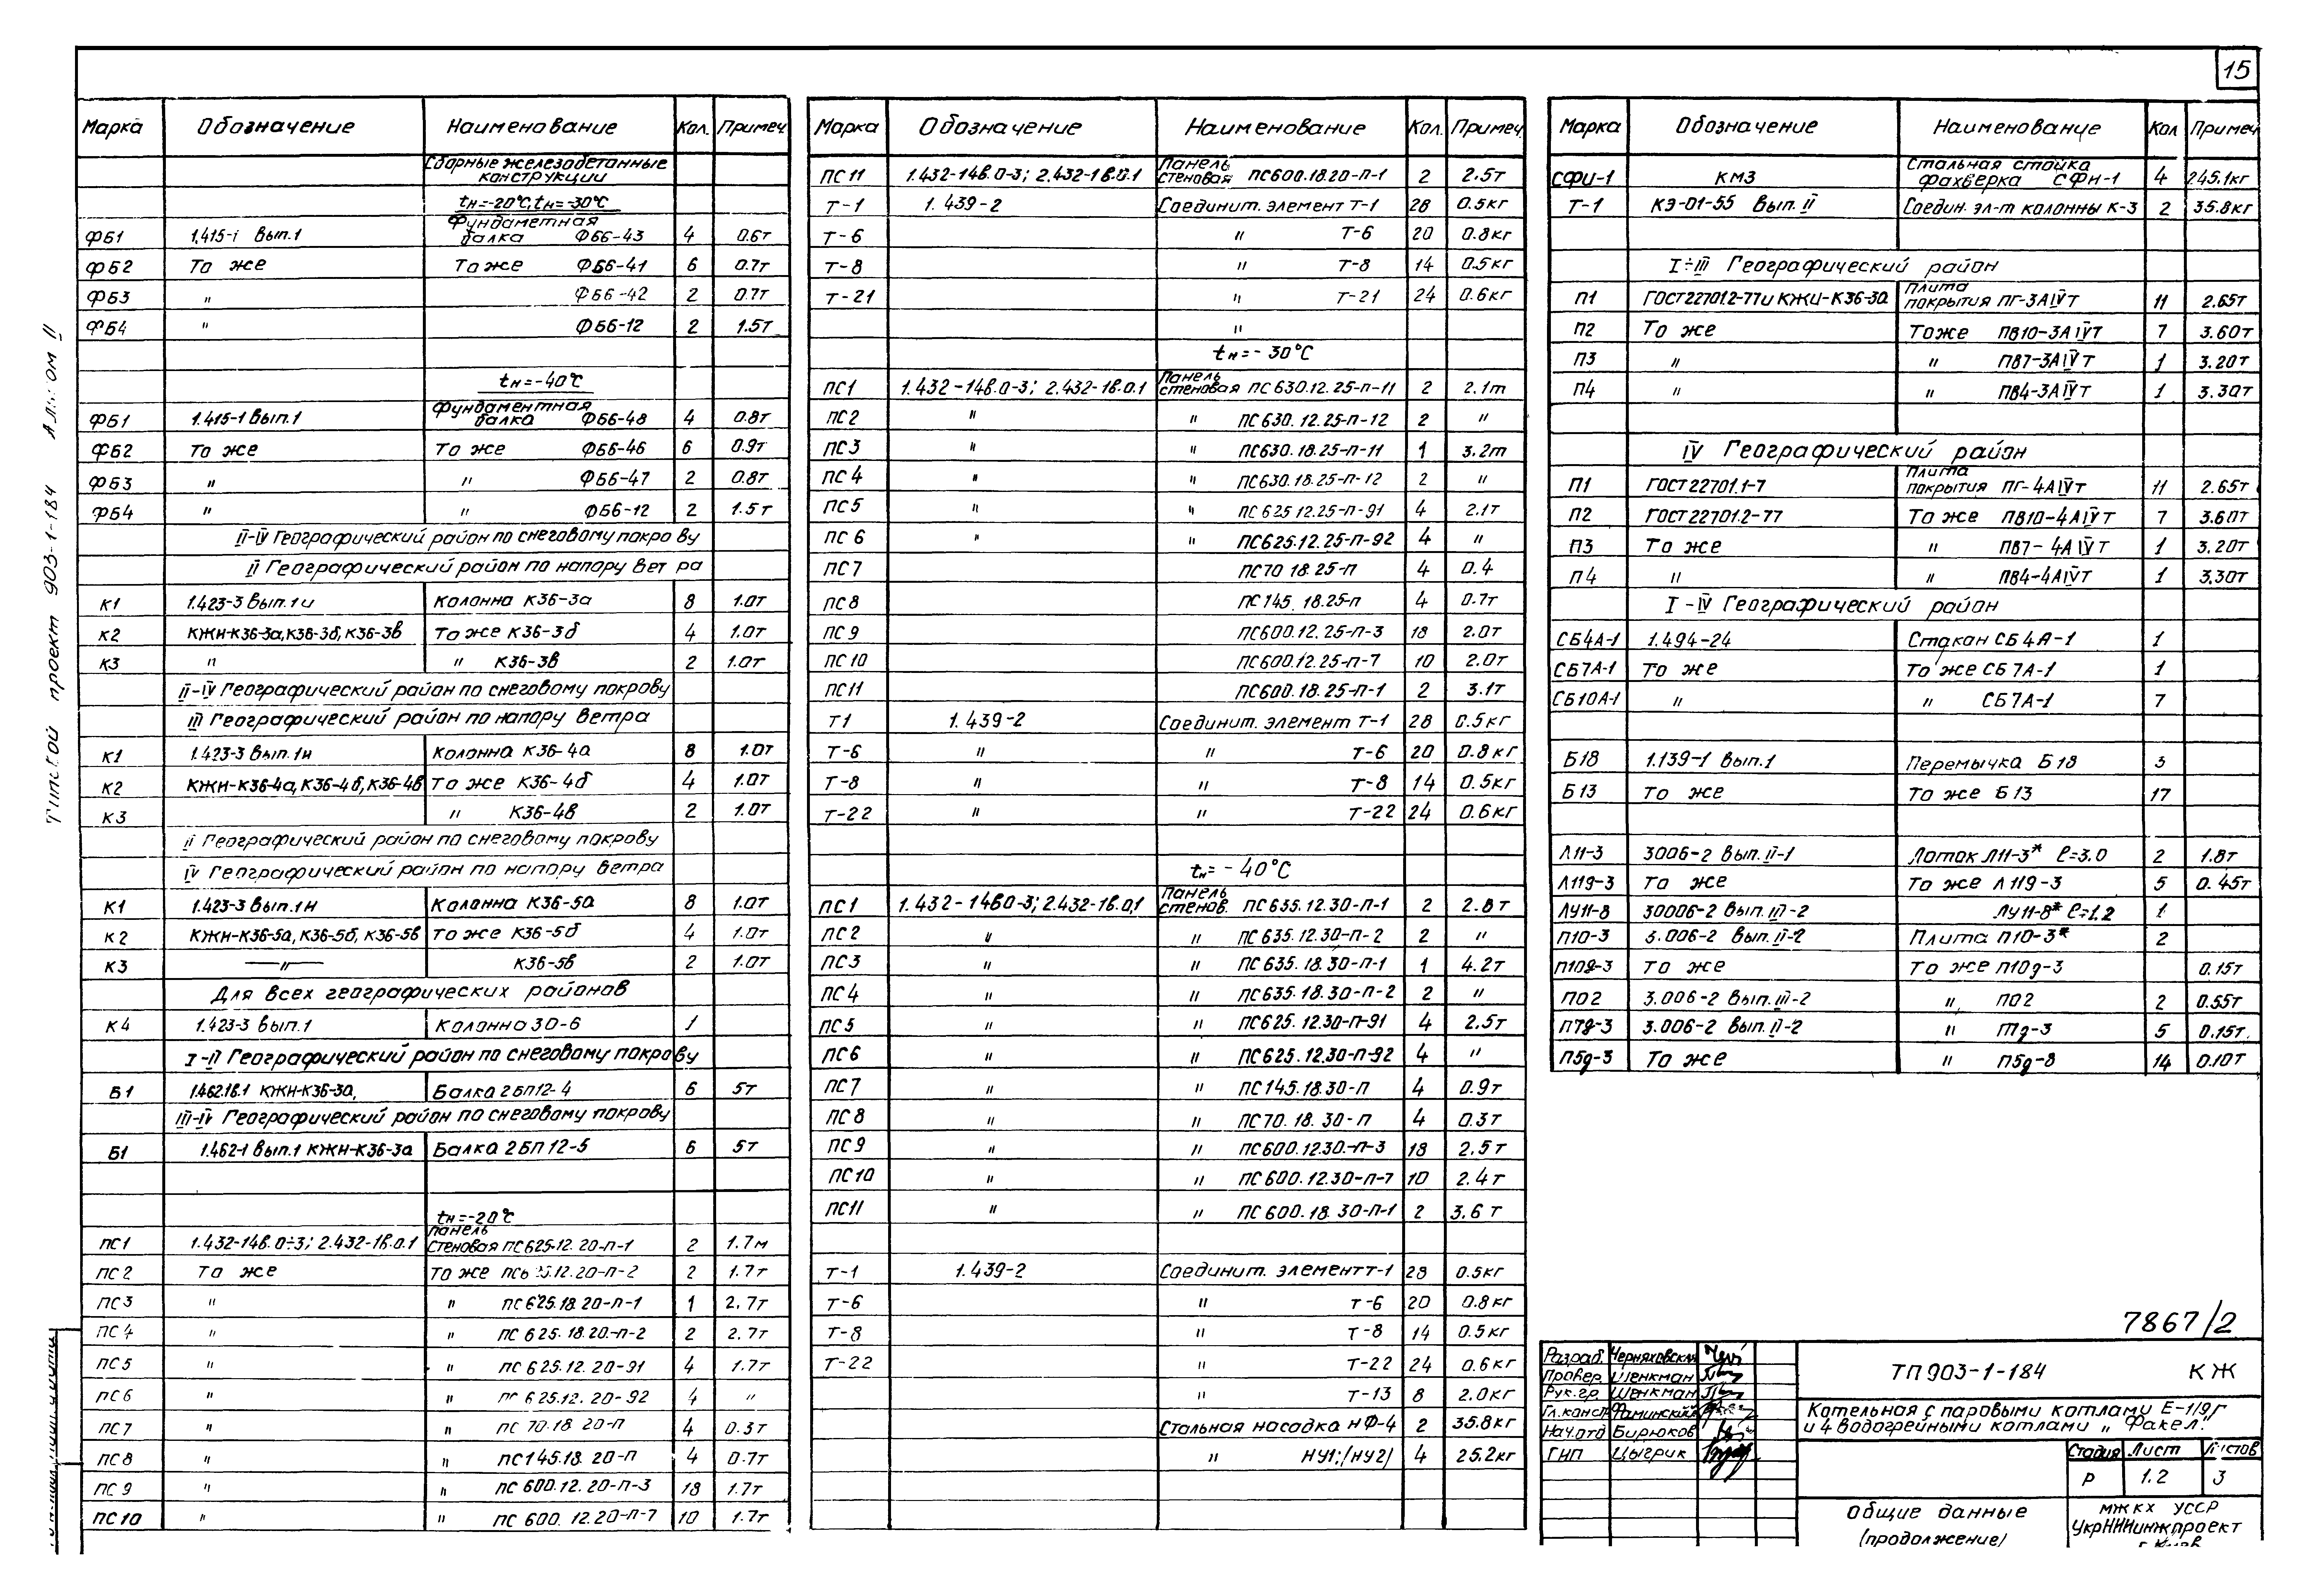 15
Марка Обозначение Наименование Кол. Примеч
Сборные железобетонные
конструкции
tн=-20°С, tн=-30°С
ФБ1 1.415-1 вып.1 Фундаметная балка ФБ6-43 4 0.6т
ФБ2 То же То же ФБ6-41 6 0.7т
ФБ3 " ФБ6-42 2 0.7т
ФБ4 " ФБ6-12 2 1.5т
tн=-40°С
ФБ1 1.415-1 вып.1 Фундаментная балка ФБ6-48 4 0.8т
ФБ2 То же То же ФБ6-46 6 0.9т
ФБ3 " " ФБ6-47 2 0.8т
ФБ4 " " ФБ6-12 2 1.5т
II-IV Географический район по снеговому покрову
II Географический район по напору ветра
К1 1.423-3 вып.1и Колонна К36-3а 8 1.0т
К2 КЖИ-К36-3а, К36-3б, К36-3в То же К36-3б 4 1.0т
К3 " " К36-3в 2 1.0т
II-IV Географический район по снеговому покрову
III Географический район по напору ветра
К1 1.423-3 вып.1и Колонна К36-4а 8 1.0т
К2 КЖИ-К36-4а, К36-4б, К36-4в То же К36-4б 4 1.0т
К3 " К36-4в 2 1.0т
II Географический район по снеговому покрову
IV Географический район по напору ветра
К1 1.423-3 вып.1и Колонна К36-5а 8 1.0т
К2 КЖИ-К36-5а, К36-5б, К36-5в То же К36-5б 4 1.0т
К3 — " — К36-5в 2 1.0т
Для всех географических районов
К4 1.423-3 вып.1 Колонна 30-6 1
I-II Географический район по снеговому покрову
Б1 1.462.1в.1 КЖИ-К36-3а, Балка 2БП12-4 6 5т
III-IV Географический район по снеговому покрову
Б1 1.462-1 вып.1 КЖИ-К36-3а Балка 2БП12-5 6 5т
tн=-20°С
ПС1 1.432-14в.0÷3; 2.432-1в.0.1 Панель стеновая ПС625.12.20-П-1 2 1.7м
ПС2 То же То же 2 1.7т
ПС3 " " ПС625.18.20-П-1 1 2.7т
ПС4 " " ПС625.18.20-П-2 2 2.7т
ПС5 " " ПС625.12.20-91 4 1.7т
ПС6 " " ПС625.12.20-92 4 "
ПС7 " " ПС70.18.20-П 4 0.3т
ПС8 " " ПС145.18.20-П 4 0.7т
ПС9 " " ПС600.12.20-П-3 18 1.7т
ПС10 " " ПС600.12.20-П-7 10 1.7т
Марка Обозначение Наименование Кол. Примеч
ПС11 1.432-14в.0-3; 2.432-1в.0.1 Панель стеновая ПС600.18.20-П-1 2 2.5т
Т-1 1.439-2 Соединит. элемент Т-1 28 0.5кг
Т-6 " Т-6 20 0.8кг
Т-8 " Т-8 14 0.5кг
Т-21 " Т-21 24 0.6кг
"
tн=-30°С
ПС1 1.432-14в.0-3; 2.432-1в.0.1 Панель стеновая ПС630.12.25-П-11 2 2.1т
ПС2 " " ПС630.12.25-П-12 2 "
ПС3 " " ПС630.18.25-П-11 1 3.2т
ПС4 " " ПС630.18.25-П-12 2 "
ПС5 " " ПС625.12.25-П-91 4 2.1т
ПС6 " " ПС625.12.25-П-92 4 "
ПС7 ПС70 18.25-П 4 0.4
ПС8 ПС145.18.25-П 4 0.7т
ПС9 ПС600.12.25-П-3 18 2.0т
ПС10 ПС600.12.25-П-7 10 2.0т
ПС11 ПС600.18.25-П-1 2 3.1т
Т1 1.439-2 Соединит. элемент Т-1 28 0.5кг
Т-6 " " Т-6 20 0.8кг
Т-8 " " Т-8 14 0.5кг
Т-22 " " Т-22 24 0.6кг
tн=-40°С
ПС1 1.432-14в0-3; 2.432-1в.0,1 Панель стенов. ПС635.12.30-П-1 2 2.8т
ПС2 " " ПС635.12.30-П-2 2 "
ПС3 " " ПС635.18.30-П-1 1 4.2т
ПС4 " " ПС635.18.30-П-2 2 "
ПС5 " " ПС625.12.30-П-91 4 2.5т
ПС6 " " ПС625.12.30-П-92 4 "
ПС7 " " ПС145.18.30-П 4 0.9т
ПС8 " " ПС70.18.30-П 4 0.3т
ПС9 " " ПС600.12.30-П-3 18 2.5т
ПС10 " " ПС600.12.30-П-7 10 2.4т
ПС11 " " ПС600.18.30-П-1 2 3.6т
Т-1 1.439-2 Соединит. элемент Т-1 28 0.5кг
Т-6 " Т-6 20 0.8кг
Т-8 " Т-8 14 0.5кг
Т-22 " Т-22 24 0.6кг
" Т-13 8 2.0кг
Стальная насадка НФ-4 2 35.8кг
" НУ1;/НУ2/ 4 25.2кг
Марка Обозначение Наименование Кол Примеч
СФИ-1 КМ3 Стальная стойка фахверка СФИ-1 4 245.1кг
Т-1 КЭ-01-55 вып. II Соедин. эл-т колонны К-3 2 35.8кг
I÷III Географический район
П1 ГОСТ22701.2-77 и КЖИ-К36-3а Плита покрытия ПГ-3АIVТ 11 2.65т
П2 То же То же ПВ10-3АIVТ 7 3.60т
П3 " " ПВ7-3АIVТ 1 3.20т
П4 " " ПВ4-3АIVТ 1 3.30т
IV Географический район
П1 ГОСТ22701.1-7 Плита покрытия ПГ-4АIVТ 11 2.65т
П2 ГОСТ22701.2-77 То же ПВ10-4АIVТ 7 3.60т
П3 То же " ПВ7-4АIVТ 1 3.20т
П4 " " ПВ4-4АIVТ 1 3.30т
I-IV Географический район
СБ4А-1 1.494-24 Стакан СБ4А-1 1
СБ7А-1 То же То же СБ7А-1 1
СБ10А-1 " " СБ7А-1 7
Б18 1.139-1 вып.1 Перемычка Б18 3
Б13 То же То же Б13 17
Л11-3 3006-2 вып. II-1 Лоток Л11-3* ℓ=3.0 2 1.8т
Л11д-3 То же То же Л11д-3 5 0.45т
ЛУ11-8 30006-2 вып. III-2 ЛУ11-8* ℓ=1.2 1
П10-3 3.006-2 вып. II-2 Плита П10-3* 2
П10д-3 То же То же П10д-3 0.15т
ПО2 3.006-2 вып. III-2 " ПО2 2 0.55т
П7д-3 3.006-2 вып. II-2 " 5 0.15т.
П5д-3 То же " П5д-8 14 0.10т
7867/2
Разраб. Черняховская
Провер. Шенкман
Рук.гр. Шенкман
Гл.констр Фаминский
Нач.отд Бирюков
ГИП Цыгрик
ТП 903-1-184 КЖ
Котельная с паровыми котлами Е-1/9Г
и 4 водогрейными котлами „Факел".
Стадия Лист Листов
Р 1.2 3
Общие данные
(продолжение)
МЖКХ УССР
УкрНИИинжпроект
Типовой проект 903-1-184 Альбом II